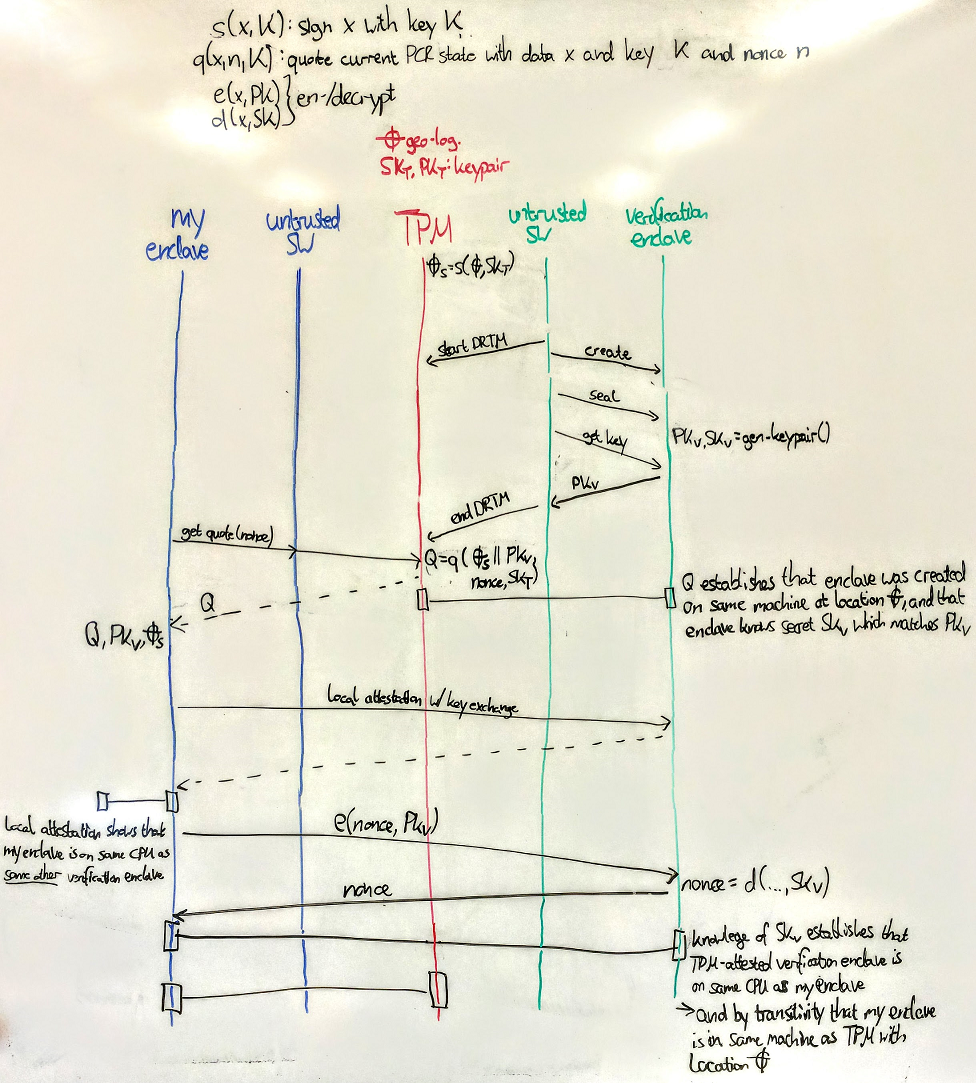 s(x,K): sign x with key K
q(x,n,K): quote current PCR state with data x and key K and nonce n
e(x,PK) } en-/decrypt
d(x,SK)
ɸ geo-log.
SK_T, PK_T: keypair
my enclave
untrusted SW
TPM
untrusted SW
verification enclave
ɸ_s = s(ɸ, SK_T)
start DRTM
create
seal
get key
PK_V, SK_V = gen-keypair()
PK_V
end DRTM
get quote(nonce)
Q = q( ɸ_s || PK_V,
nonce, SK_T)
Q
Q, PK_V, ɸ_s
Q establishes that enclave was created
on same machine at location ɸ, and that
enclave knows secret SK_V which matches PK_V
local attestation w/ key exchange
local attestation shows that
my enclave is on same CPU as
some other verification enclave
e(nonce, PK_V)
nonce = d(..., SK_V)
nonce
knowlege of SK_V establishes that
TPM-attested verification enclave is
on same CPU as my enclave
→ and by transitivity that my enclave
is in same machine as TPM with
location ɸ